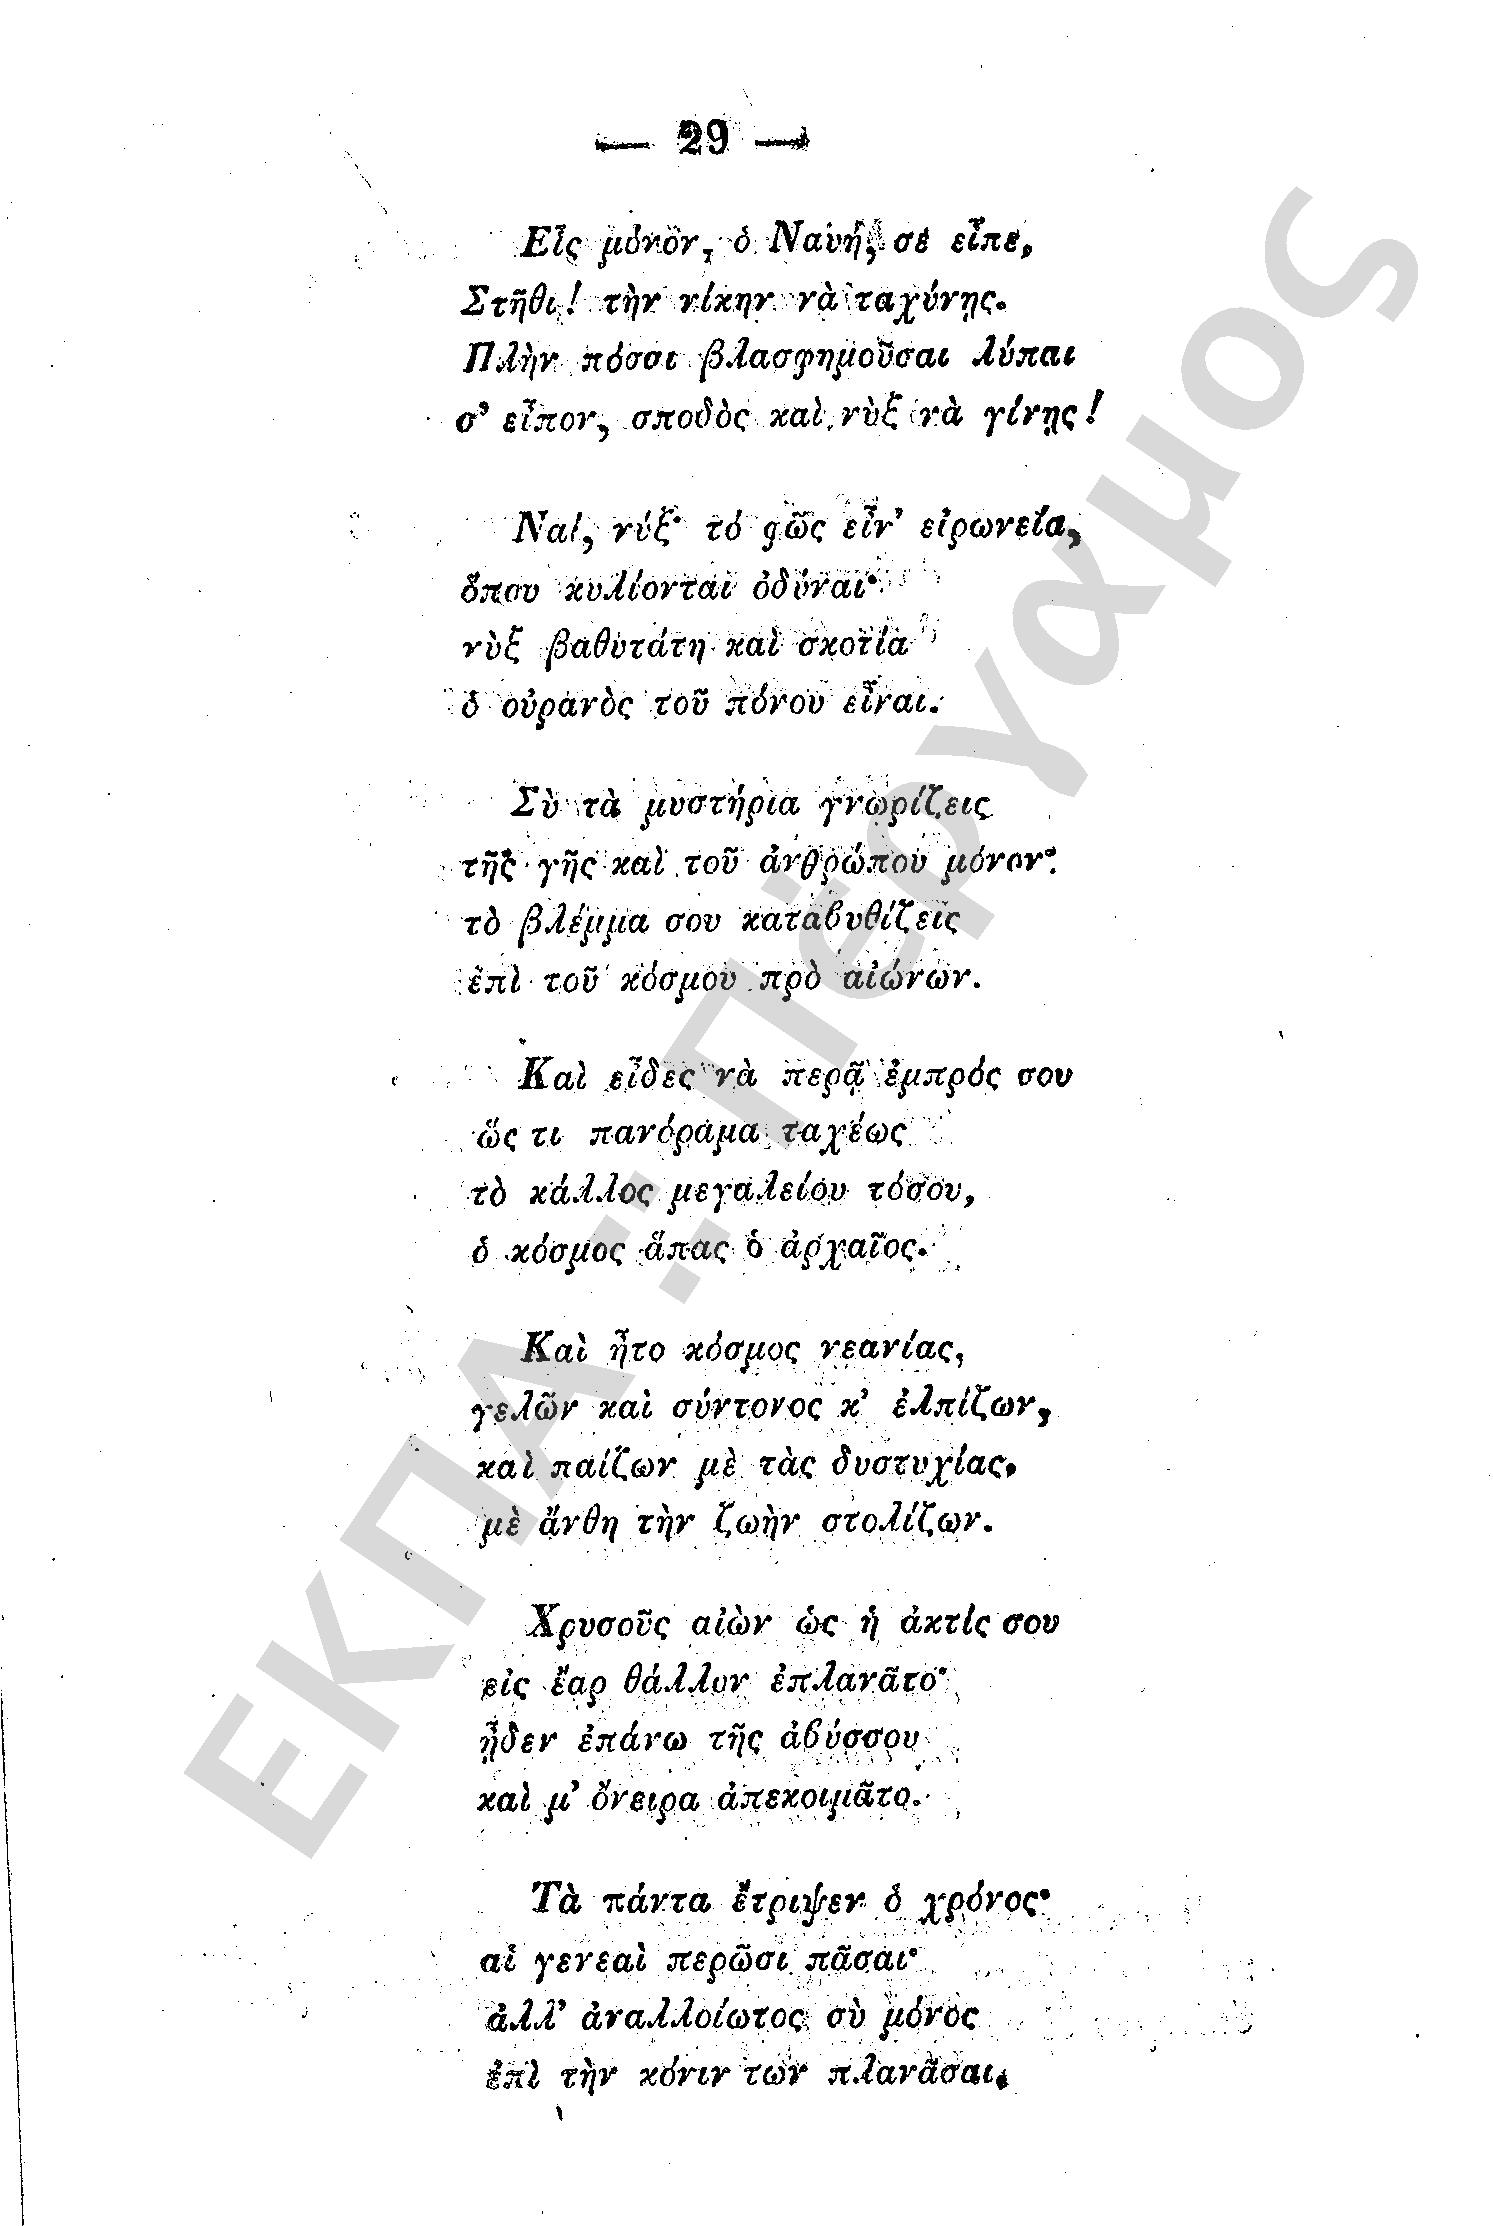 — 29 —
Εἷς μόνον, ὁ Ναυῆ, σὲ εἶπε,
Στῆθι! τὴν νίκην νὰ ταχύνῃς.
Πλὴν πόσαι βλασφημοῦσαι λύπαι
σ' εἶπον, σποδὸς καὶ νὺξ νὰ γίνῃς!
Ναί, νύξ· τό φῶς εἶν' εἰρωνεία,
ὅπου κυλίονται ὀδύναι·
νὺξ βαθυτάτη καὶ σκοτία
ὁ οὐρανὸς τοῦ πόνου εἶναι.
Σὺ τὰ μυστήρια γνωρίζεις
τῆς γῆς καὶ τοῦ ἀνθρώπου μόνον·
τὸ βλέμμα σου καταβυθίζεις
ἐπὶ τοῦ κόσμου πρὸ αἰώνων.
Καὶ εἶδες νὰ περᾷ ἐμπρός σου
ὥς τι πανόραμα ταχέως
τὸ κάλλος μεγαλείου τόσου,
ὁ κόσμος ἅπας ὁ ἀρχαῖος.
Καὶ ἦτο κόσμος νεανίας,
γελῶν καὶ σύντονος κ' ἐλπίζων,
καὶ παίζων μὲ τὰς δυστυχίας,
μὲ ἄνθη τὴν ζωὴν στολίζων.
Χρυσοῦς αἰὼν ὡς ἡ ἀκτίς σου
εἰς ἔαρ θάλλον ἐπλανᾶτο·
ᾖδεν ἐπάνω τῆς ἀβύσσου
καὶ μ' ὄνειρα ἀπεκοιμᾶτο.
Τὰ πάντα ἔτριψεν ὁ χρόνος·
αἱ γενεαὶ περῶσι πᾶσαι·
ἀλλ' ἀναλλοίωτος σὺ μόνος
ἐπὶ τὴν κόνιν των πλανᾶσαι.
ΕΚΠΑ : Πέργαμος